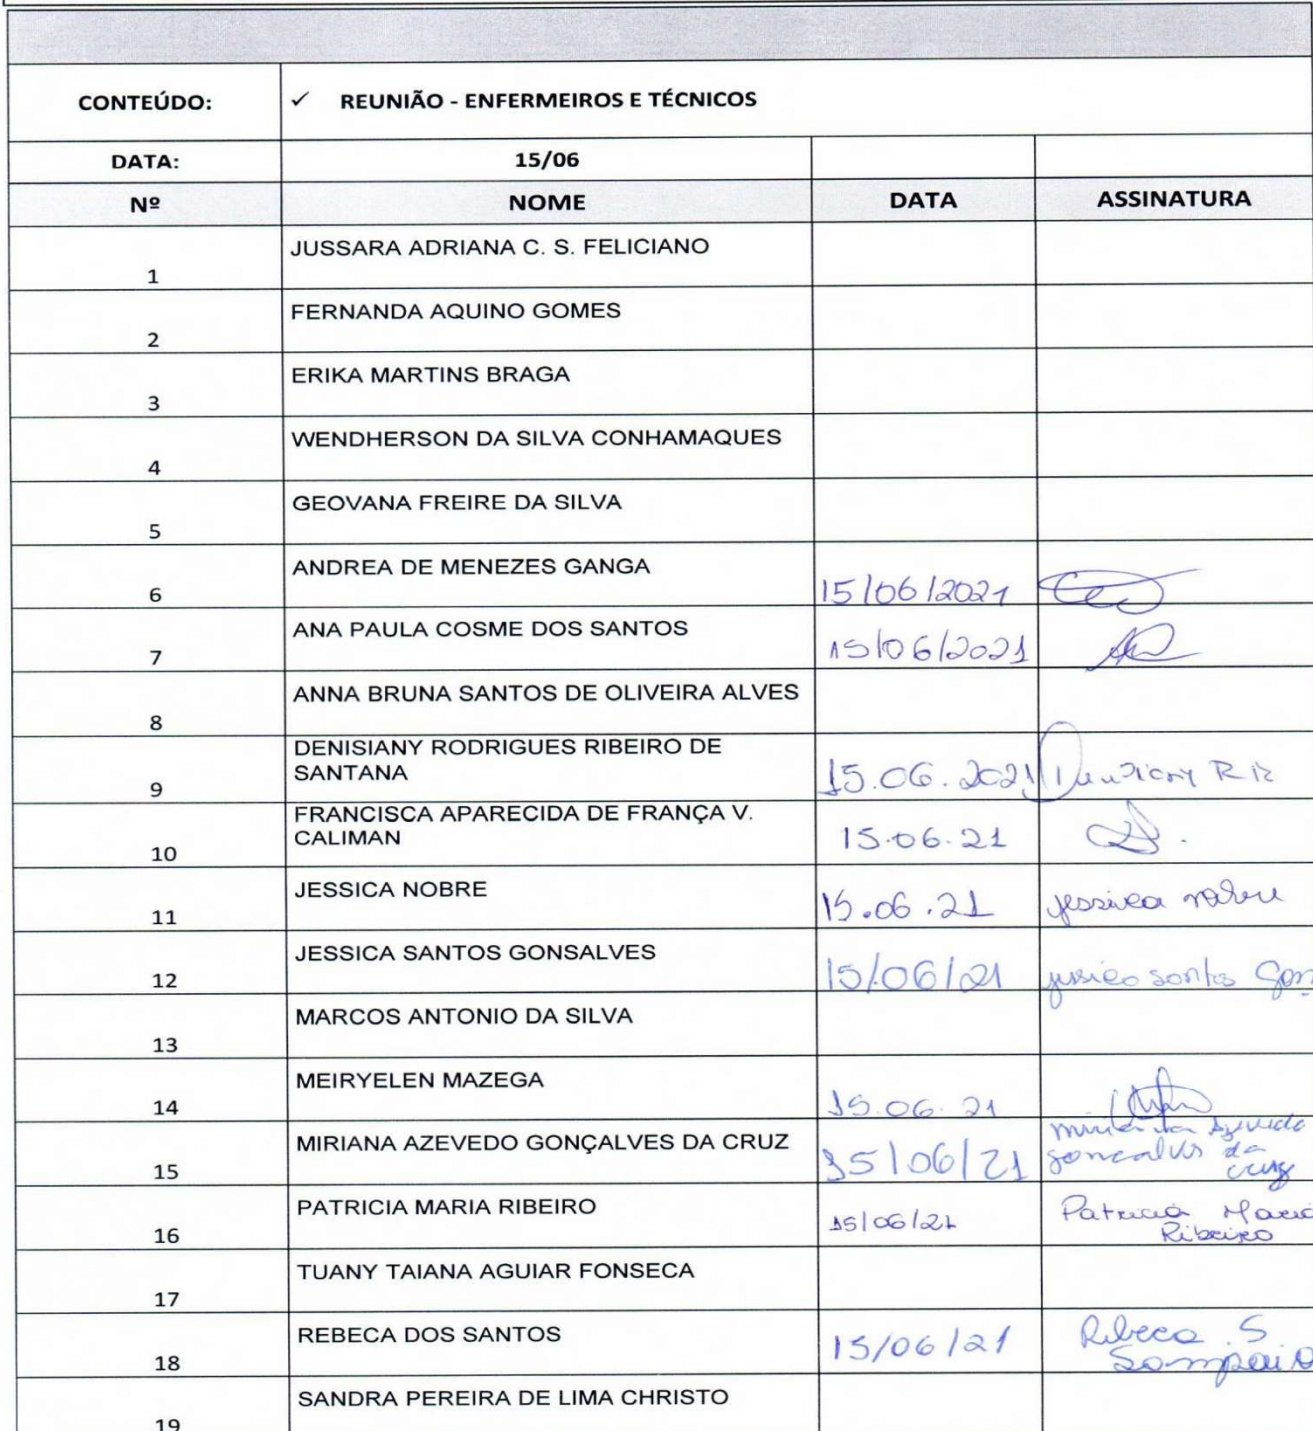 CONTEÚDO: ✓ REUNIÃO - ENFERMEIROS E TÉCNICOS
DATA: 15/06
Nº NOME DATA ASSINATURA
1 JUSSARA ADRIANA C. S. FELICIANO
2 FERNANDA AQUINO GOMES
3 ERIKA MARTINS BRAGA
4 WENDHERSON DA SILVA CONHAMAQUES
5 GEOVANA FREIRE DA SILVA
6 ANDREA DE MENEZES GANGA 15/06/2021
7 ANA PAULA COSME DOS SANTOS 15/06/2021
8 ANNA BRUNA SANTOS DE OLIVEIRA ALVES
DENISIANY RODRIGUES RIBEIRO DE
9 SANTANA 15.06.2021
FRANCISCA APARECIDA DE FRANÇA V.
10 CALIMAN 15.06.21
11 JESSICA NOBRE 15.06.21 jessica nobre
12 JESSICA SANTOS GONSALVES 15/06/21 jessica santos Gon
13 MARCOS ANTONIO DA SILVA
14 MEIRYELEN MAZEGA 15.06.21
15 MIRIANA AZEVEDO GONÇALVES DA CRUZ 15/06/21 miriana Azevedo
goncalves da
cruz
16 PATRICIA MARIA RIBEIRO 15/06/21 Patricia Maria
Ribeiro
17 TUANY TAIANA AGUIAR FONSECA
18 REBECA DOS SANTOS 15/06/21 Rebeca S
Sampaio
19 SANDRA PEREIRA DE LIMA CHRISTO